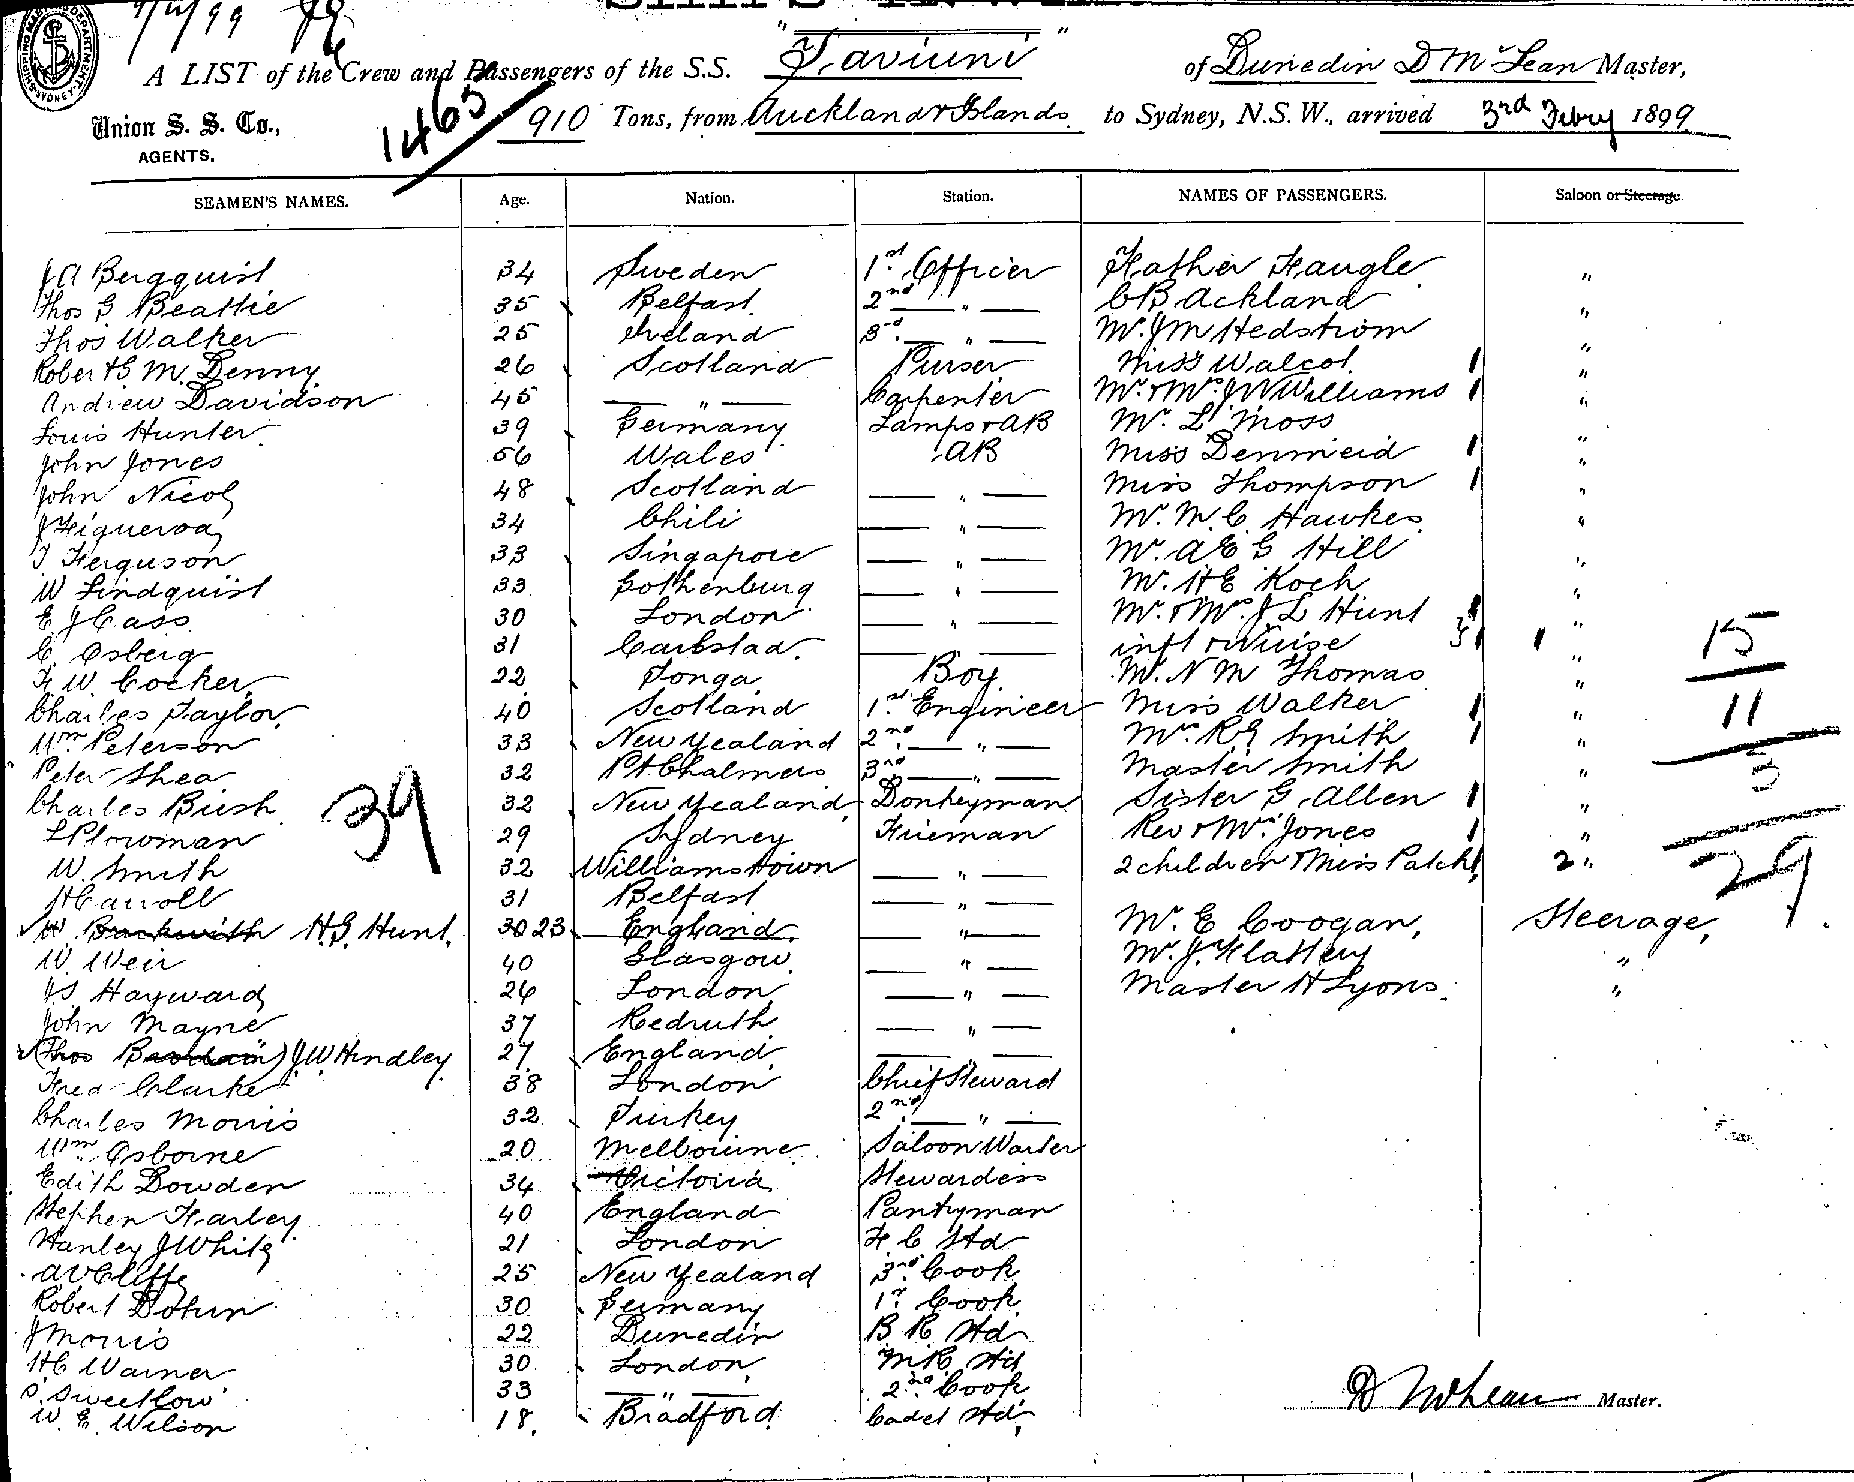 A LIST of the Crew and Passengers of the S.S. "Taviuni" of Dunedin D McLean Master,
Union S. S. Co., AGENTS.
1465
910 Tons, from Auckland & Islands to Sydney, N.S.W., arrived 3rd Febry 1899
SEAMEN'S NAMES. Age. Nation. Station. NAMES OF PASSENGERS. Saloon or Steerage
J A Bergquist 34 Sweden 1st Officer Father Haugle "
Thos G Beattie 35 Belfast 2nd " C B Ackland "
Thos Walker 25 Ireland 3rd " Mr. J M Hedstrom "
Robert G. M. Denny 26 Scotland Purser Miss Walcot 1 "
Andrew Davidson 45 " Carpenter Mr. & Mrs. J W Williams 1 "
Louis Hunter 39 Germany Lamps & AB Mr. L Moss "
John Jones 56 Wales AB Miss Denmeid 1 "
John Nicol 48 Scotland " Miss Thompson 1 "
J Figueroa 34 Chili " Mr. M. C. Hawkes "
T Ferguson 33 Singapore " Mr. A E G Hill "
W Lindquist 33 Gothenburg " Mr. H E Koch "
E J Cass 30 London " Mr. & Mrs. J L Hunt "
C. Osberg 31 Carlstad " inft & Nurse 1 "
F W Cocker 22 Tonga Boy Mr. N M Thomas "
Charles Taylor 40 Scotland 1st Engineer Miss Walker 1 "
Wm Peterson 33 New Zealand 2nd " Mrs. R G Smith 1 "
Peter Shea 32 Pt Chalmers 3rd " Master Smith "
Charles Bush 32 New Zealand Donkeyman Sister G. Allen 1 "
L Plowman 29 Sydney Fireman Rev & Mrs. Jones 1 "
W. Smith 32 Williamstown " 2 children & Miss Patch 1 2 "
H Carroll 31 Belfast "
W Beckwith H. G. Hunt. 30 23 England " Mr. E Coogan, Steerage,
W. Weir 40 Glasgow " Mr. J. Flattery "
J S Hayward 26 London " Master H Lyons "
John Mayne 37 Redruth "
(Thos) J W Hindley 27 England "
Fred Clarke 38 London Chief Steward
Charles Morris 32 Turkey 2nd "
Wm Osborne 20 Melbourne Saloon Waiter
Edith Dowden 34 Victoria Stewardess
Stephen Harley 40 England Pantryman
Stanley J White 21 London F C Std
A V Cliffe 25 New Zealand 3rd Cook
Robert Dohrn 30 Germany 1st Cook
J Morris 22 Dunedin B R Std
H C Warner 30 London M R Std
S. Sweetlow 33 " 2nd Cook
W. E. Wilson 18 Bradford Cadet Std
39
15
11
3
29
D McLean Master.